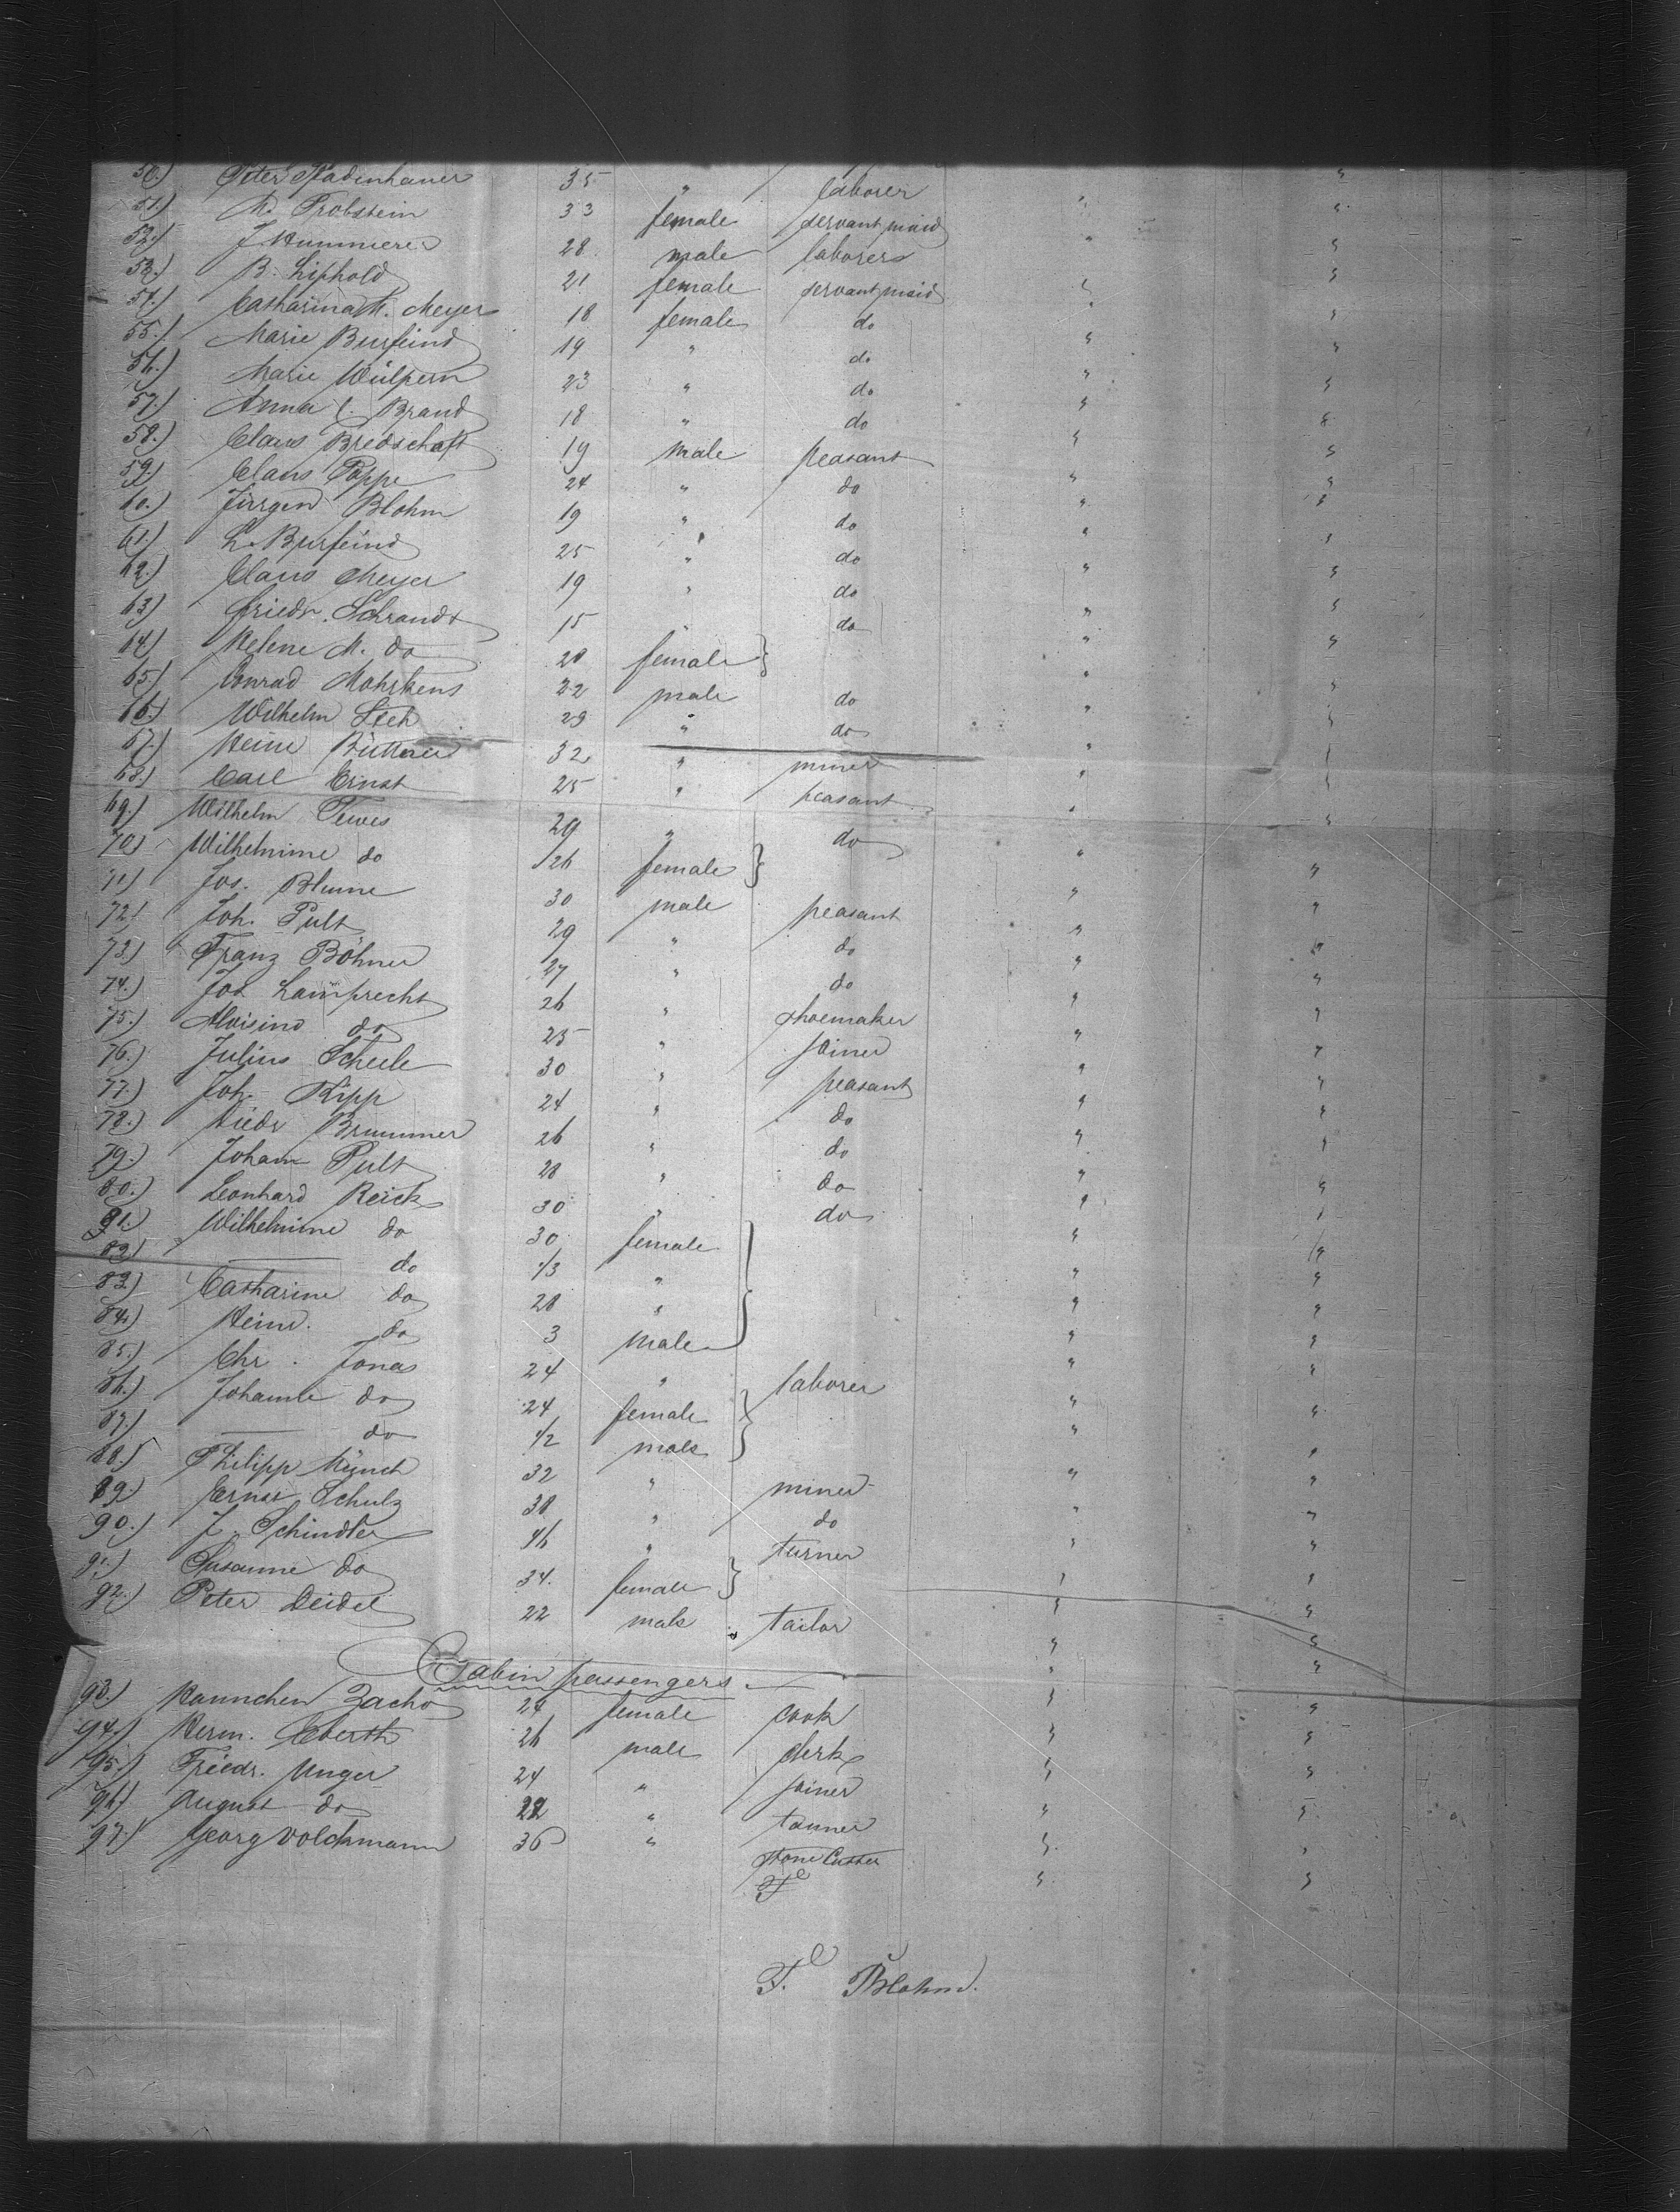 50.) Peter Stadenhauer 35 " laborer " "
51.) M. Probstein 33 female servant maid " "
52.) J. Hummerer 28 male laborer " "
53.) B. Liphold 21 female servant maid " "
54.) Catharina M. Meyer 18 female do " "
55.) Marie Burfeind 19 " do " "
56.) Marie Wülpern 23 " do " "
57.) Anna C. Brand 18 " do " "
58.) Claus Bredschaft 19 male peasant " "
59.) Claus Poppe 24 " do " "
60.) Jürgen Blohm 19 " do " "
61.) L. Burfeind 25 " do " "
62.) Claus Meyer 19 " do " "
63.) Friedr. Schrandt 15 " do " "
64.) Helene M. do 20 female } " "
65.) Conrad Mohrkens 22 male do " "
66.) Wilhelm Steh 29 " do " "
67.) Heinr Büttner 32 " miner " "
68.) Carl Ernst 25 " peasant " "
69.) Wilhelm Tewes 29 " do " "
70.) Wilhelmine do 26 female } " "
71.) Jos. Blume 30 male peasant " "
72.) Joh. Pult 29 " do " "
73.) Franz Böhner 27 " do " "
74.) Jos Lamprecht 26 " shoemaker " "
75.) Aloisius do 25 " joiner " "
76.) Julius Scheele 30 " peasant " "
77.) Joh. Kipp 24 " do " "
78.) Diedr Brummer 26 " do " "
79.) Johann Pult 28 " do " "
80.) Leonhard Reick 30 " do " "
81.) Wilhelmine do 30 female " "
82.) — do 1/3 " " "
83.) Catharine do 28 " " "
84.) Heinr. do 3 male } " "
85.) Chr. Jonas 24 " laborer " "
86.) Johanne do 24 female " "
87.) — do 1/2 male } " "
88.) Philipp Münch 32 " miner " "
89.) Ernst Schulz 38 " do " "
90.) J. Schindler 46 " turner " "
91.) Susanne do 34. female } " "
92.) Peter Deidel 22 male tailor " "
Cabin passengers.
93.) Hannchen Zacho 24 female cook " "
94.) Herm. Eberth 26 male clerk " "
95.) Friedr. Unger 24 " joiner " "
96.) August do 22 " tanner " "
97.) Georg Volckmann 36 " stone Cutter " "
F. Blohm.